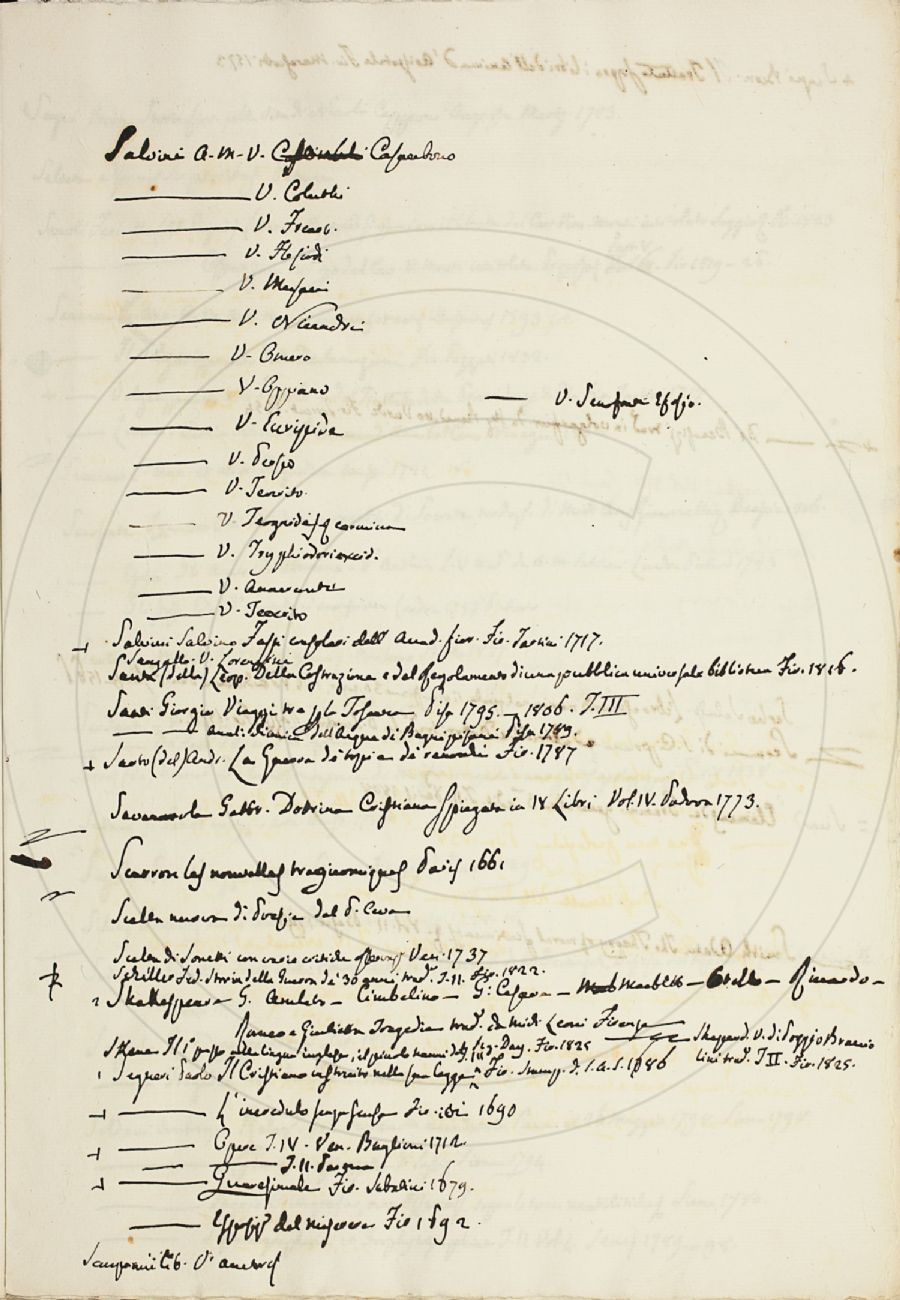 Salvini A. M. V. Casaubono
V. Coluthi
V.
V. Hesiodi
V. Musaei
V. Nicandri
V. Omero
V. Oppiano
— V. Senofonte Efesio.
V. Euripide
V.
V. Teocrito.
V. carmina
V. Tryphiodori excid.
V. Anacreonte
V. Teocrito
Salvini Salvino Fasti consolari dell' Accad. fior. Fir. Tartini 1717.
Sangallo. V. Lorenzini
Santa (della) Leop. Della Costruzione e del Regolamento di una pubblica universale biblioteca Fir. 1816.
Santi Giorgio Viaggi tre p la Toscana Pisa 1795. — 1806. T. III
— — Analisi chimica dell' Acque di Bagni pisani Pisa 1789.
Sarto (del) Andr. La Guerra de' topi e de' ranocchi Fir. 1787
Savonarola Dottrina Cristiana spiegata in 18 Libri Vol. IV. Padova 1773.
Scarron les nouvelles tragicomiques Paris 1661
Scelta nuova di Poesie del P. Ceva
Scelta di Sonetti con varie critiche Ven. 1737
Schiller Fed. Storia della Guerra de' 30 anni trad. T. II. Fir. 1822.
Shakespeare G. Amleto — Cimbelino — G. Cesare — Macbeth — Otello — Riccardo —
Romeo e Giulietta Tragedie trad. da Mich. Leoni Firenze
Shepperd V. di Poggio Bracciolini trad. T. II. Fir. 1825.
Il 1° passo alla lingua inglese, Fir. 1825
Segneri Paolo Il Cristiano istruito nella sua legge Fir. Stamp. d. S. A. S. 1686
— L'incredulo senza scusa Fir. 1690
— Opere T. IV. Ven. Baglioni 1712.
— T. II. Parma
— Quaresimale Fir. Sabatini 1679.
— del miserere Fir 1692.